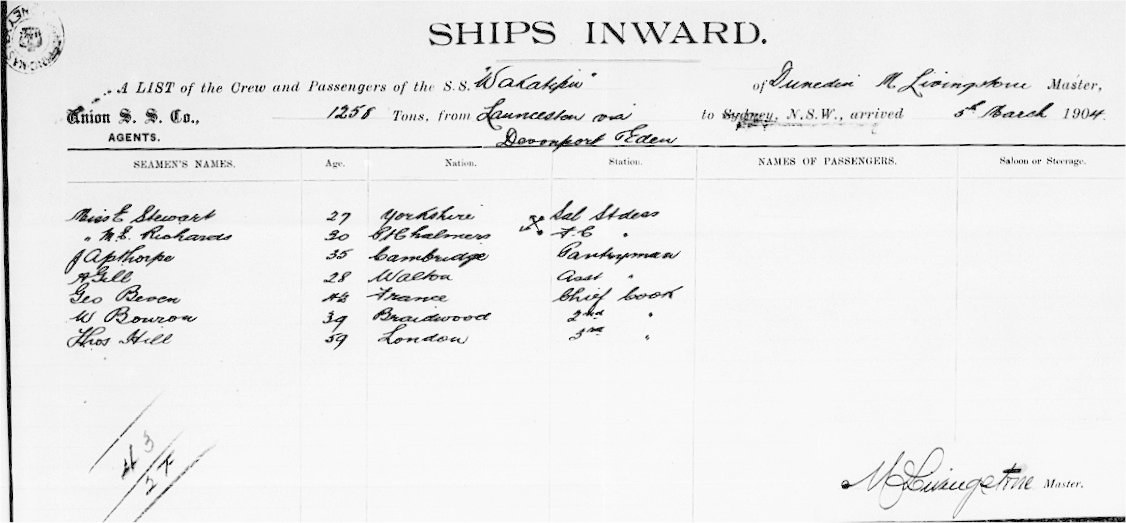 SHIPS INWARD.
A LIST of the Crew and Passengers of the S.S. "Wakatipu" of Dunedin M Livingstone Master,
Union S. S. Co., 1258 Tons, from Launceston via to Sydney, N.S.W., arrived 5th March 1904
AGENTS. Devonport Eden
SEAMEN'S NAMES. Age. Nation. Station. NAMES OF PASSENGERS. Saloon or Steerage.
Miss E Stewart 27 Yorkshire Sal Stdess
" M. E. Richards 30 Pt Chalmers F. C "
J Apthorpe 35 Cambridge Pantryman
A Gill 28 Walton Asst "
Geo Beven France Chief Cook
W Bouron 39 Braidwood 2nd "
Thos Hill 59 London 3rd "
43
M Livingstone Master.